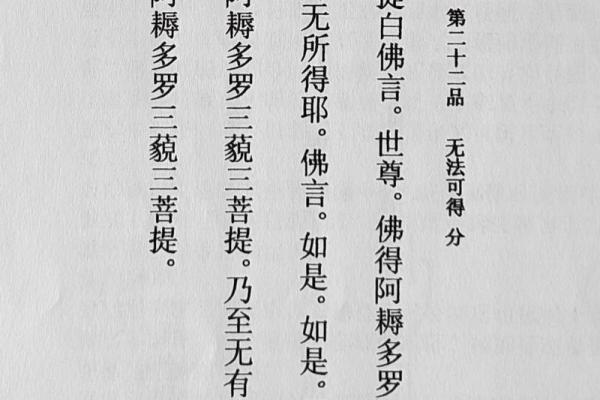 第二十二品 无法可得分
提白佛言。世尊。佛得阿耨多罗
无所得耶。佛言。如是。如是。
阿耨多罗三藐三菩提。乃至无有
阿耨多罗三藐三菩提。